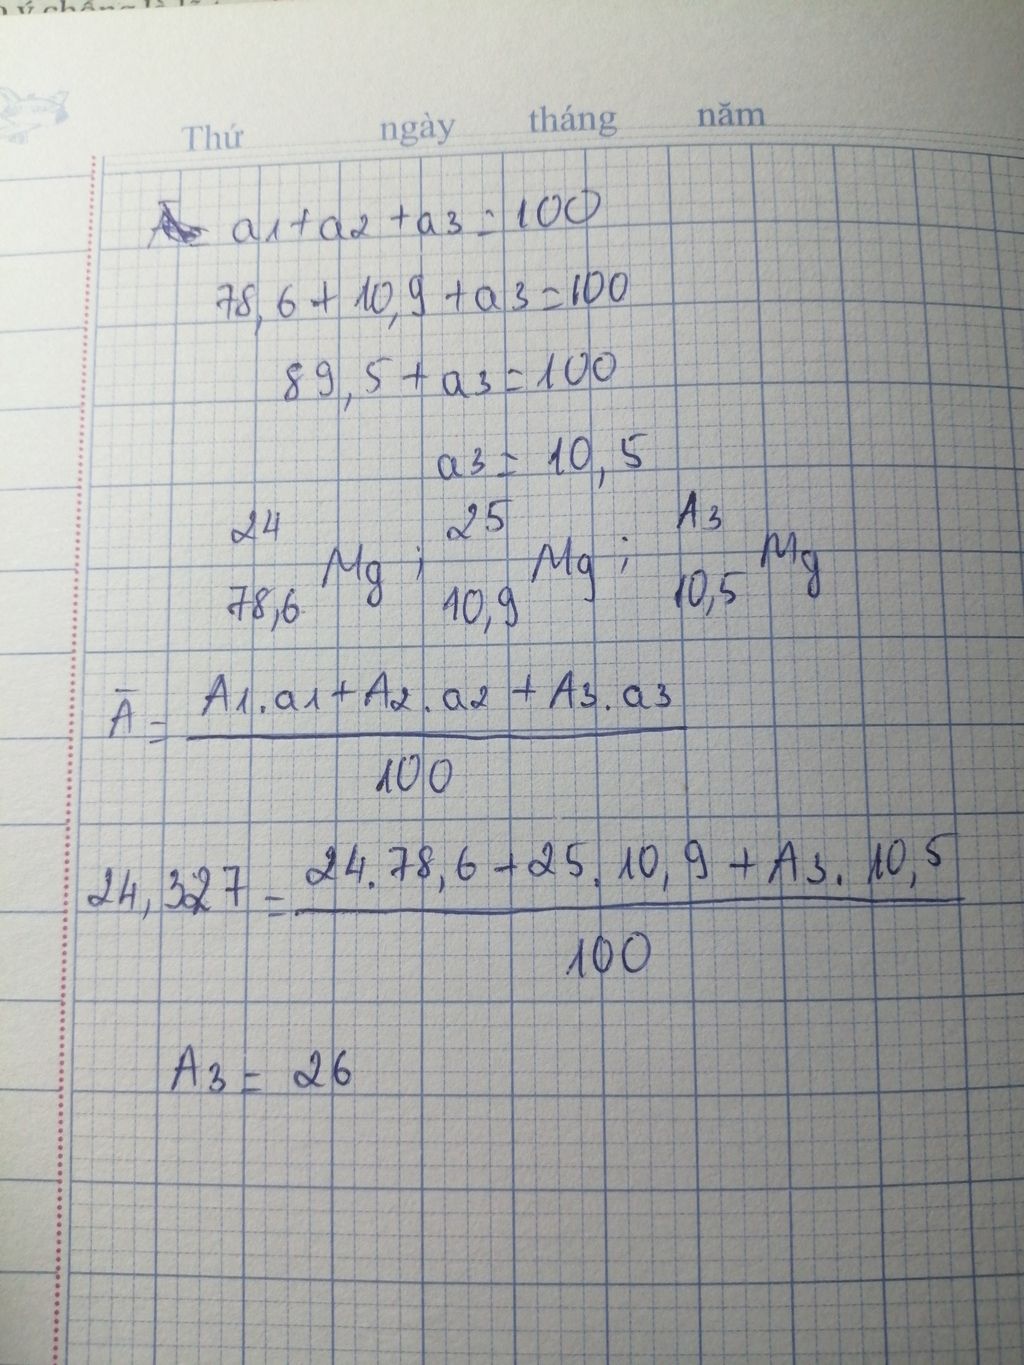 Thứ ngày tháng năm
a1+a2+a3=100
78,6+10,9+a3=100
89,5+a3=100
a3= 10,5
24 25 A3
Mg ; Mg ; Mg
78,6 10,9 10,5
Ā = A1.a1+A2.a2+A3.a3
100
24,327 = 24.78,6+25.10,9+A3.10,5
100
A3= 26